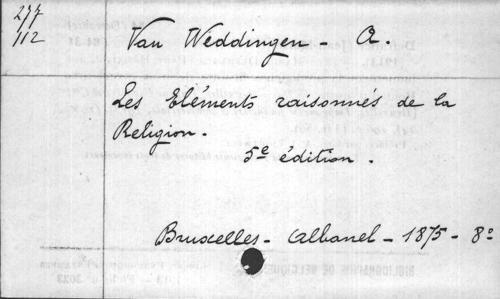 277
112
Van Weddingen - A.
Les Eléments raisonnés de la
Religion.
5e édition.
Bruxelles - Albanel - 1875 - 8o